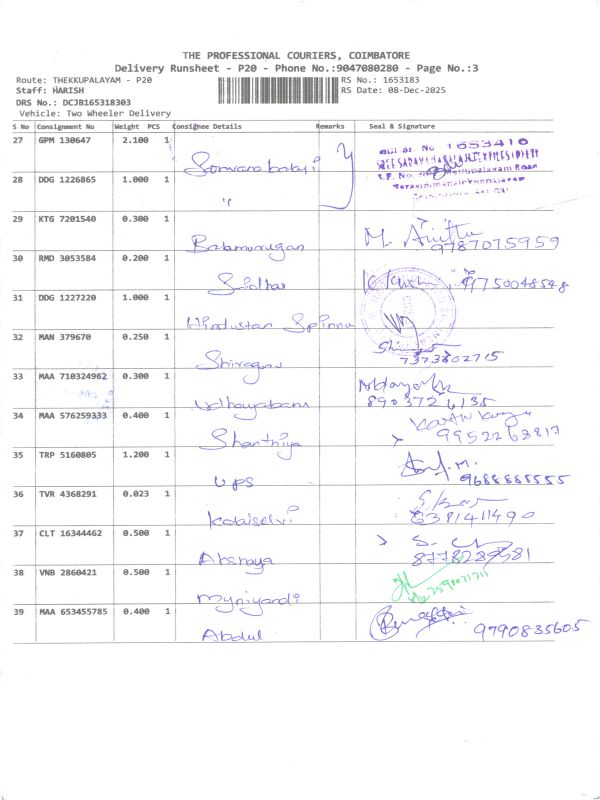 THE PROFESSIONAL COURIERS, COIMBATORE
Delivery Runsheet - P20 - Phone No.:9047080280 - Page No.:3
Route: THEKKUPALAYAM - P20 RS No.: 1653183
Staff: HARISH RS Date: 08-Dec-2025
DRS No.: DCJB165318303
Vehicle: Two Wheeler Delivery
S No Consignment No Weight PCS Consignee Details Remarks Seal & Signature
27 GPM 130647 2.100 1 1653410
28 DDG 1226865 1.000 1 "
29 KTG 7201540 0.300 1 Balamurugan M. 9787075959
30 RMD 3053584 0.200 1 Sridhar 9750048548
31 DDG 1227220 1.000 1 Hindustan
32 MAN 379670 0.250 1 7373802715
33 MAA 710324962 0.300 1 Udhayabanu 8903726135
34 MAA 576259333 0.400 1 Shanthiya 9952263817
35 TRP 5160805 1.200 1 UPS 9688885555
36 TVR 4368291 0.023 1 Kalaiselvi 6381411490
37 CLT 16344462 0.500 1 Akshaya
38 VNB 2860421 0.500 1
39 MAA 653455785 0.400 1 Abdul 9790835605